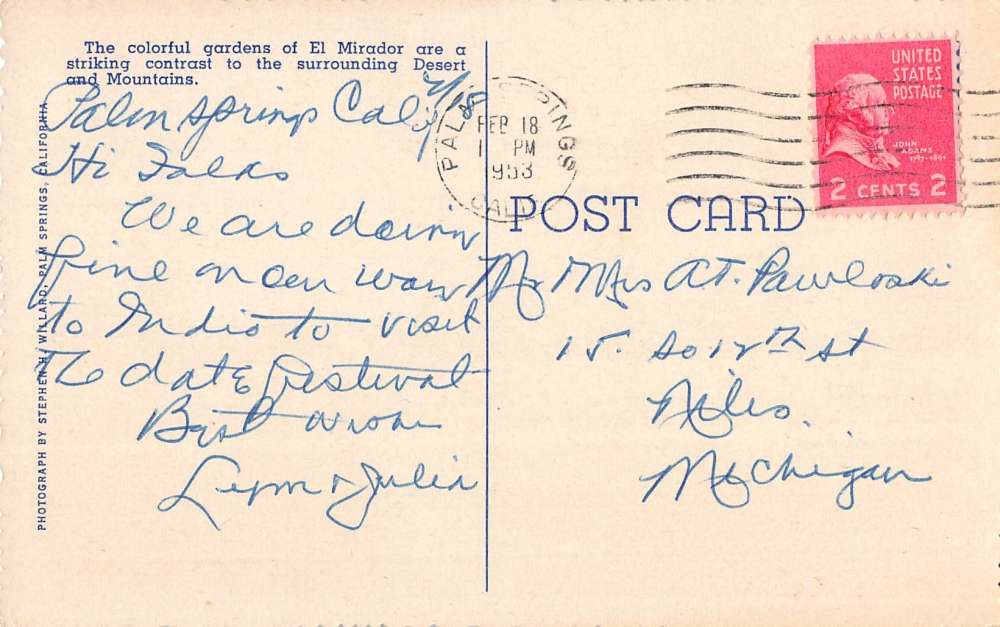 The colorful gardens of El Mirador are a
striking contrast to the surrounding Desert
and Mountains.
Palm Springs Calif
2/18
Hi Folks
We are doing
fine on our way
to Indio to visit
the date festival
Best wishes
& Julia
PHOTOGRAPH BY STEPHEN H. WILLARD, PALM SPRINGS, CALIFORNIA
PALM SPRINGS
FEB 18
1 PM
1953
CALIF
UNITED
STATES
POSTAGE
JOHN
ADAMS
1797-1801
2 CENTS 2
POST CARD
Mr Mrs A.T. Pawloski
15. So 12th st
Niles.
Michigan